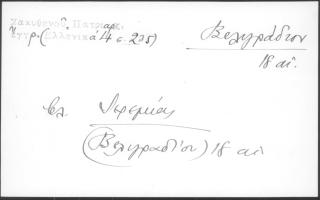 Ζακυθηνοῦ. Πατριαρχ.
Ἔγγρ. (Ἑλληνικά 4 σ. 225)
Βελιγράδιον
18 αἰ.
βλ. Ἱερεμίας
(Βελιγραδίου) 18 αἰ